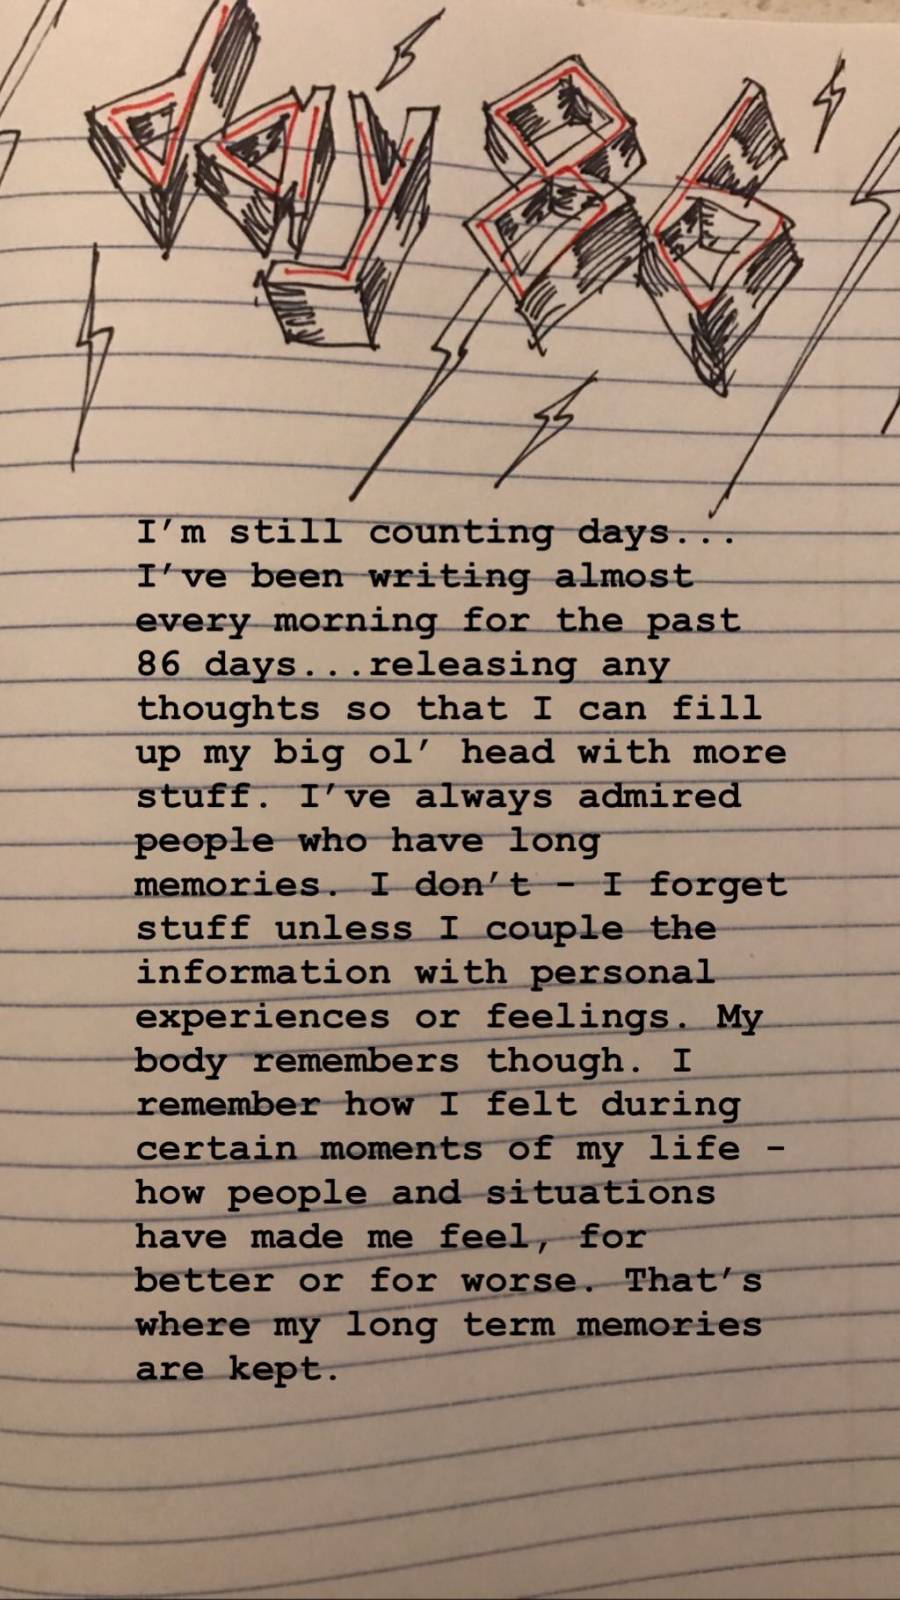 day 86
I'm still counting days...
I've been writing almost
every morning for the past
86 days...releasing any
thoughts so that I can fill
up my big ol' head with more
stuff. I've always admired
people who have long
memories. I don't – I forget
stuff unless I couple the
information with personal
experiences or feelings. My
body remembers though. I
remember how I felt during
certain moments of my life –
how people and situations
have made me feel, for
better or for worse. That's
where my long term memories
are kept.